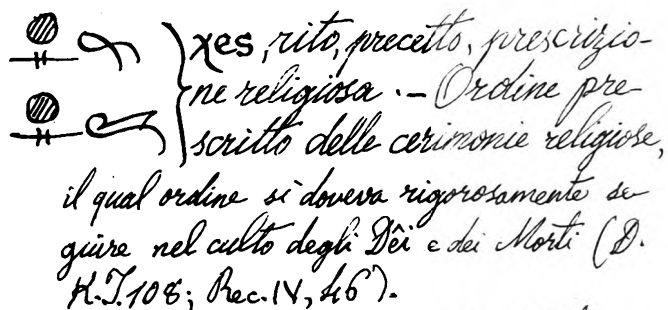 χes, rito, precetto, prescrizio-
ne religiosa. – Ordine pre-
scritto delle cerimonie religiose,
il qual ordine si doveva rigorosamente se-
guire nel culto degli Dêi e dei Morti (D.
K.T. 108; Rec. IV, 46).